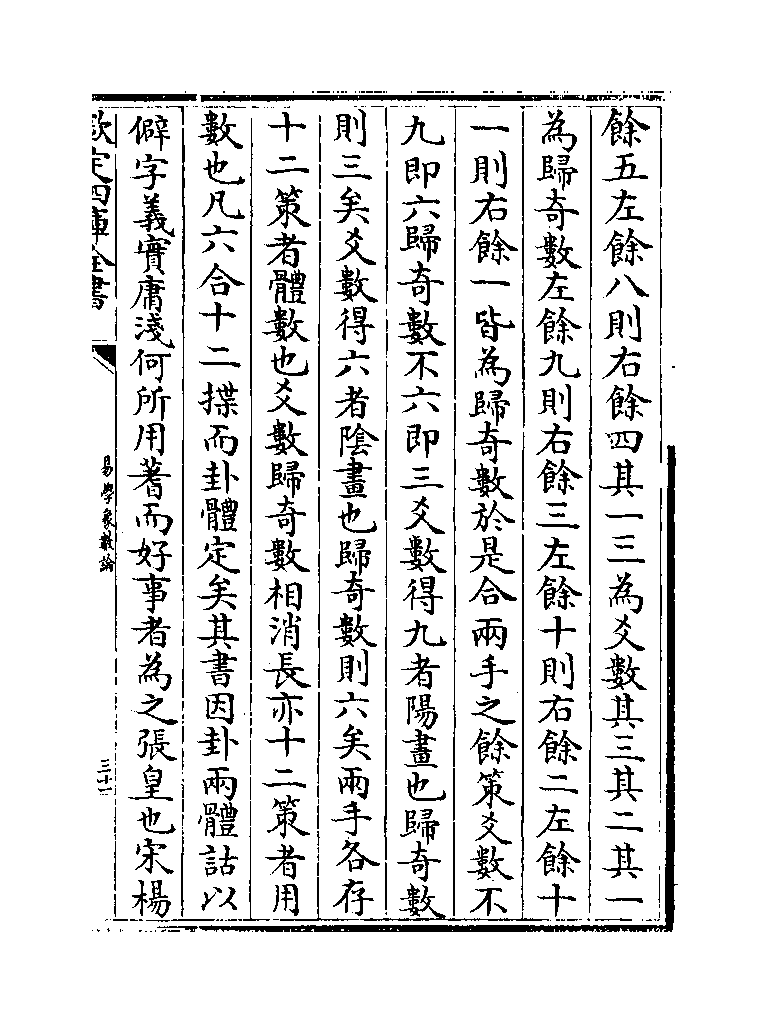 餘五左餘八則右餘四其一三為爻數其三其二其一
為歸奇數左餘九則右餘三左餘十則右餘二左餘十
一則右餘一皆為歸奇數於是合兩手之餘策爻數不
九即六歸奇數不六即三爻數得九者陽畫也歸奇數
則三矣爻數得六者陰畫也歸奇數則六矣兩手各存
十二策者體數也爻數歸奇數相消長亦十二策者用
數也凡六合十二揲而卦體定矣其書因卦兩體詁以
僻字義實庸淺何所用蓍而好事者為之張皇也宋楊
欽定四庫全書
易學象數論
三十一